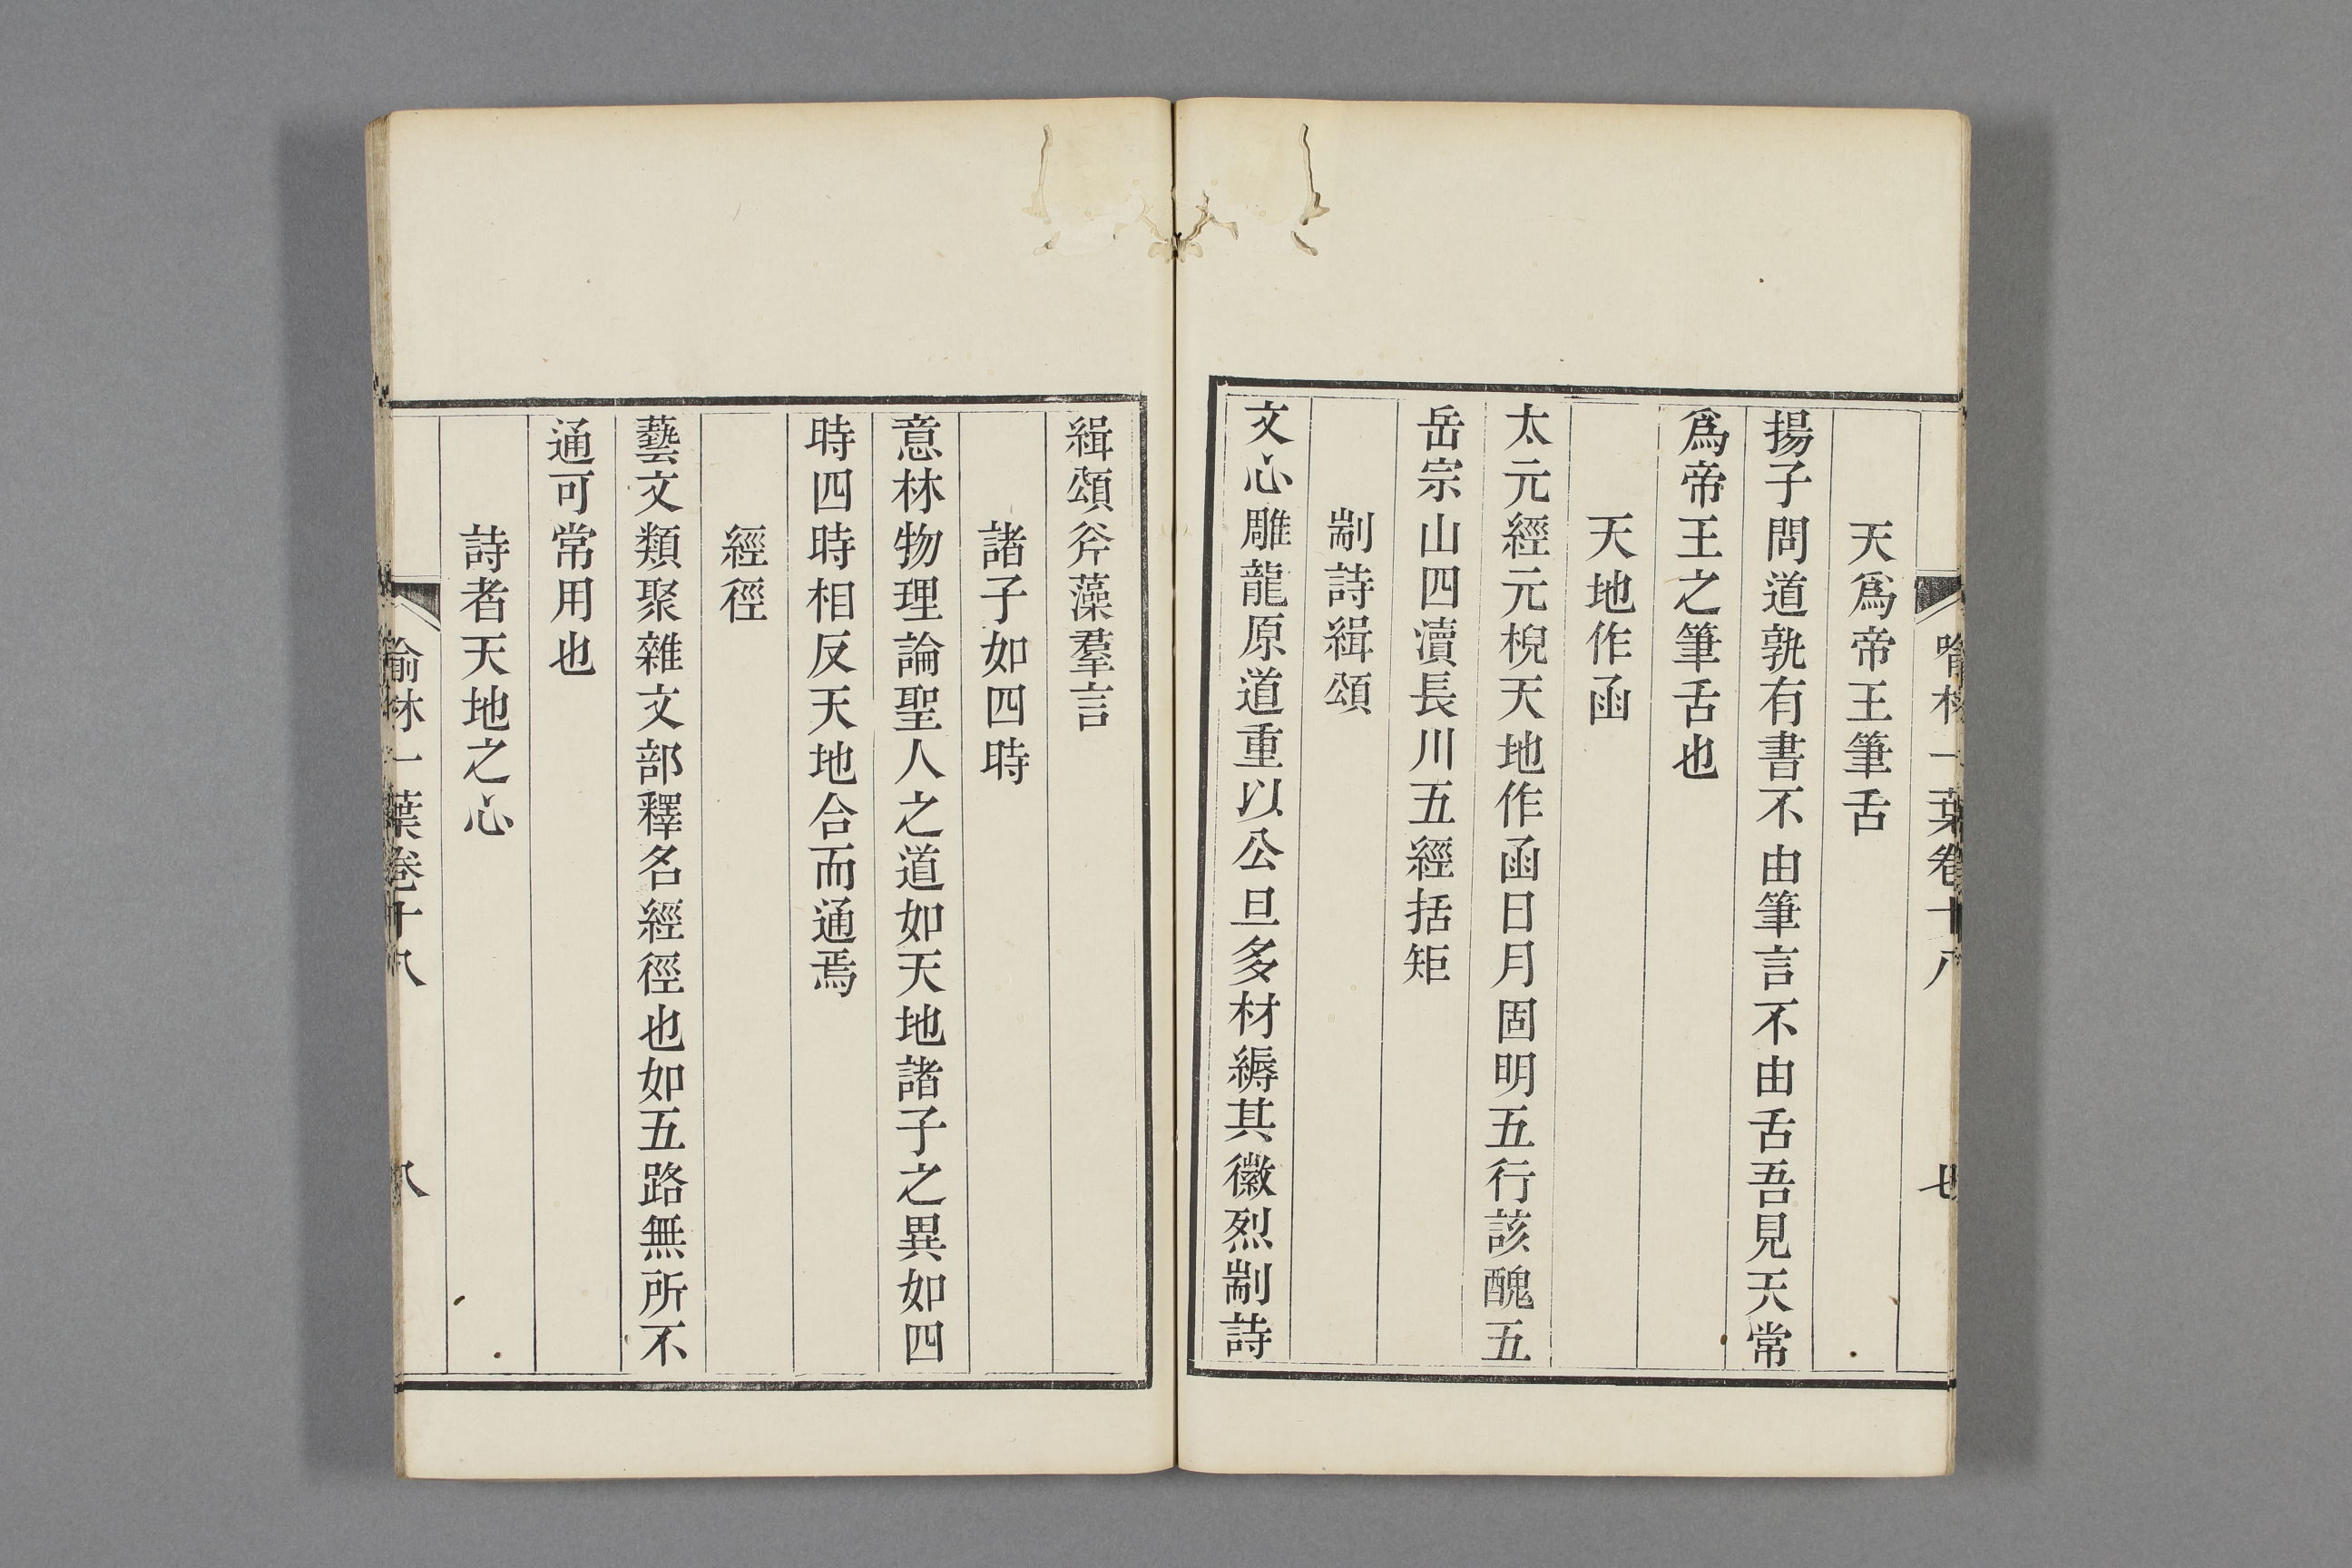 天爲帝王筆舌
揚子問道孰有書不由筆言不由舌吾見天常
爲帝王之筆舌也
天地作函
太元經元棿天地作函日月固明五行該醜五
岳宗山四瀆長川五經括矩
剬詩緝頌
文心雕龍原道重以公旦多材縟其徽烈剬詩
緝頌斧藻羣言
諸子如四時
意林物理論聖人之道如天地諸子之異如四
時四時相反天地合而通焉
經徑
藝文類聚雜文部釋名經徑也如五路無所不
通可常用也
詩者天地之心
喻林一葉卷十八
八